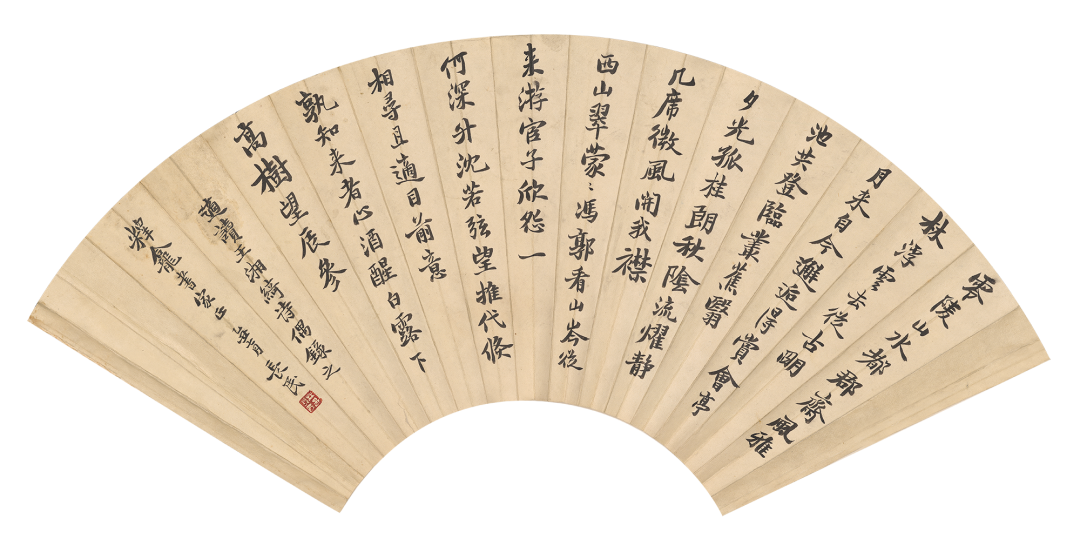 零陵山水都郡齋風雅
秋浮雲去從古明
月来自今邂逅得賞會亭
池共登臨叢蕉翳
夕光孤桂朗秋陰流耀静
几席微風開我襟
西山翠蒙〻馮郭看山岑從
来游宦子欣怨一
何深升沈若弦望推代倏
相尋且適目前意
孰知来者心酒醒白露下
高樹望辰參
適讀王湘綺詩偶錄之
釋龕書家正 長民